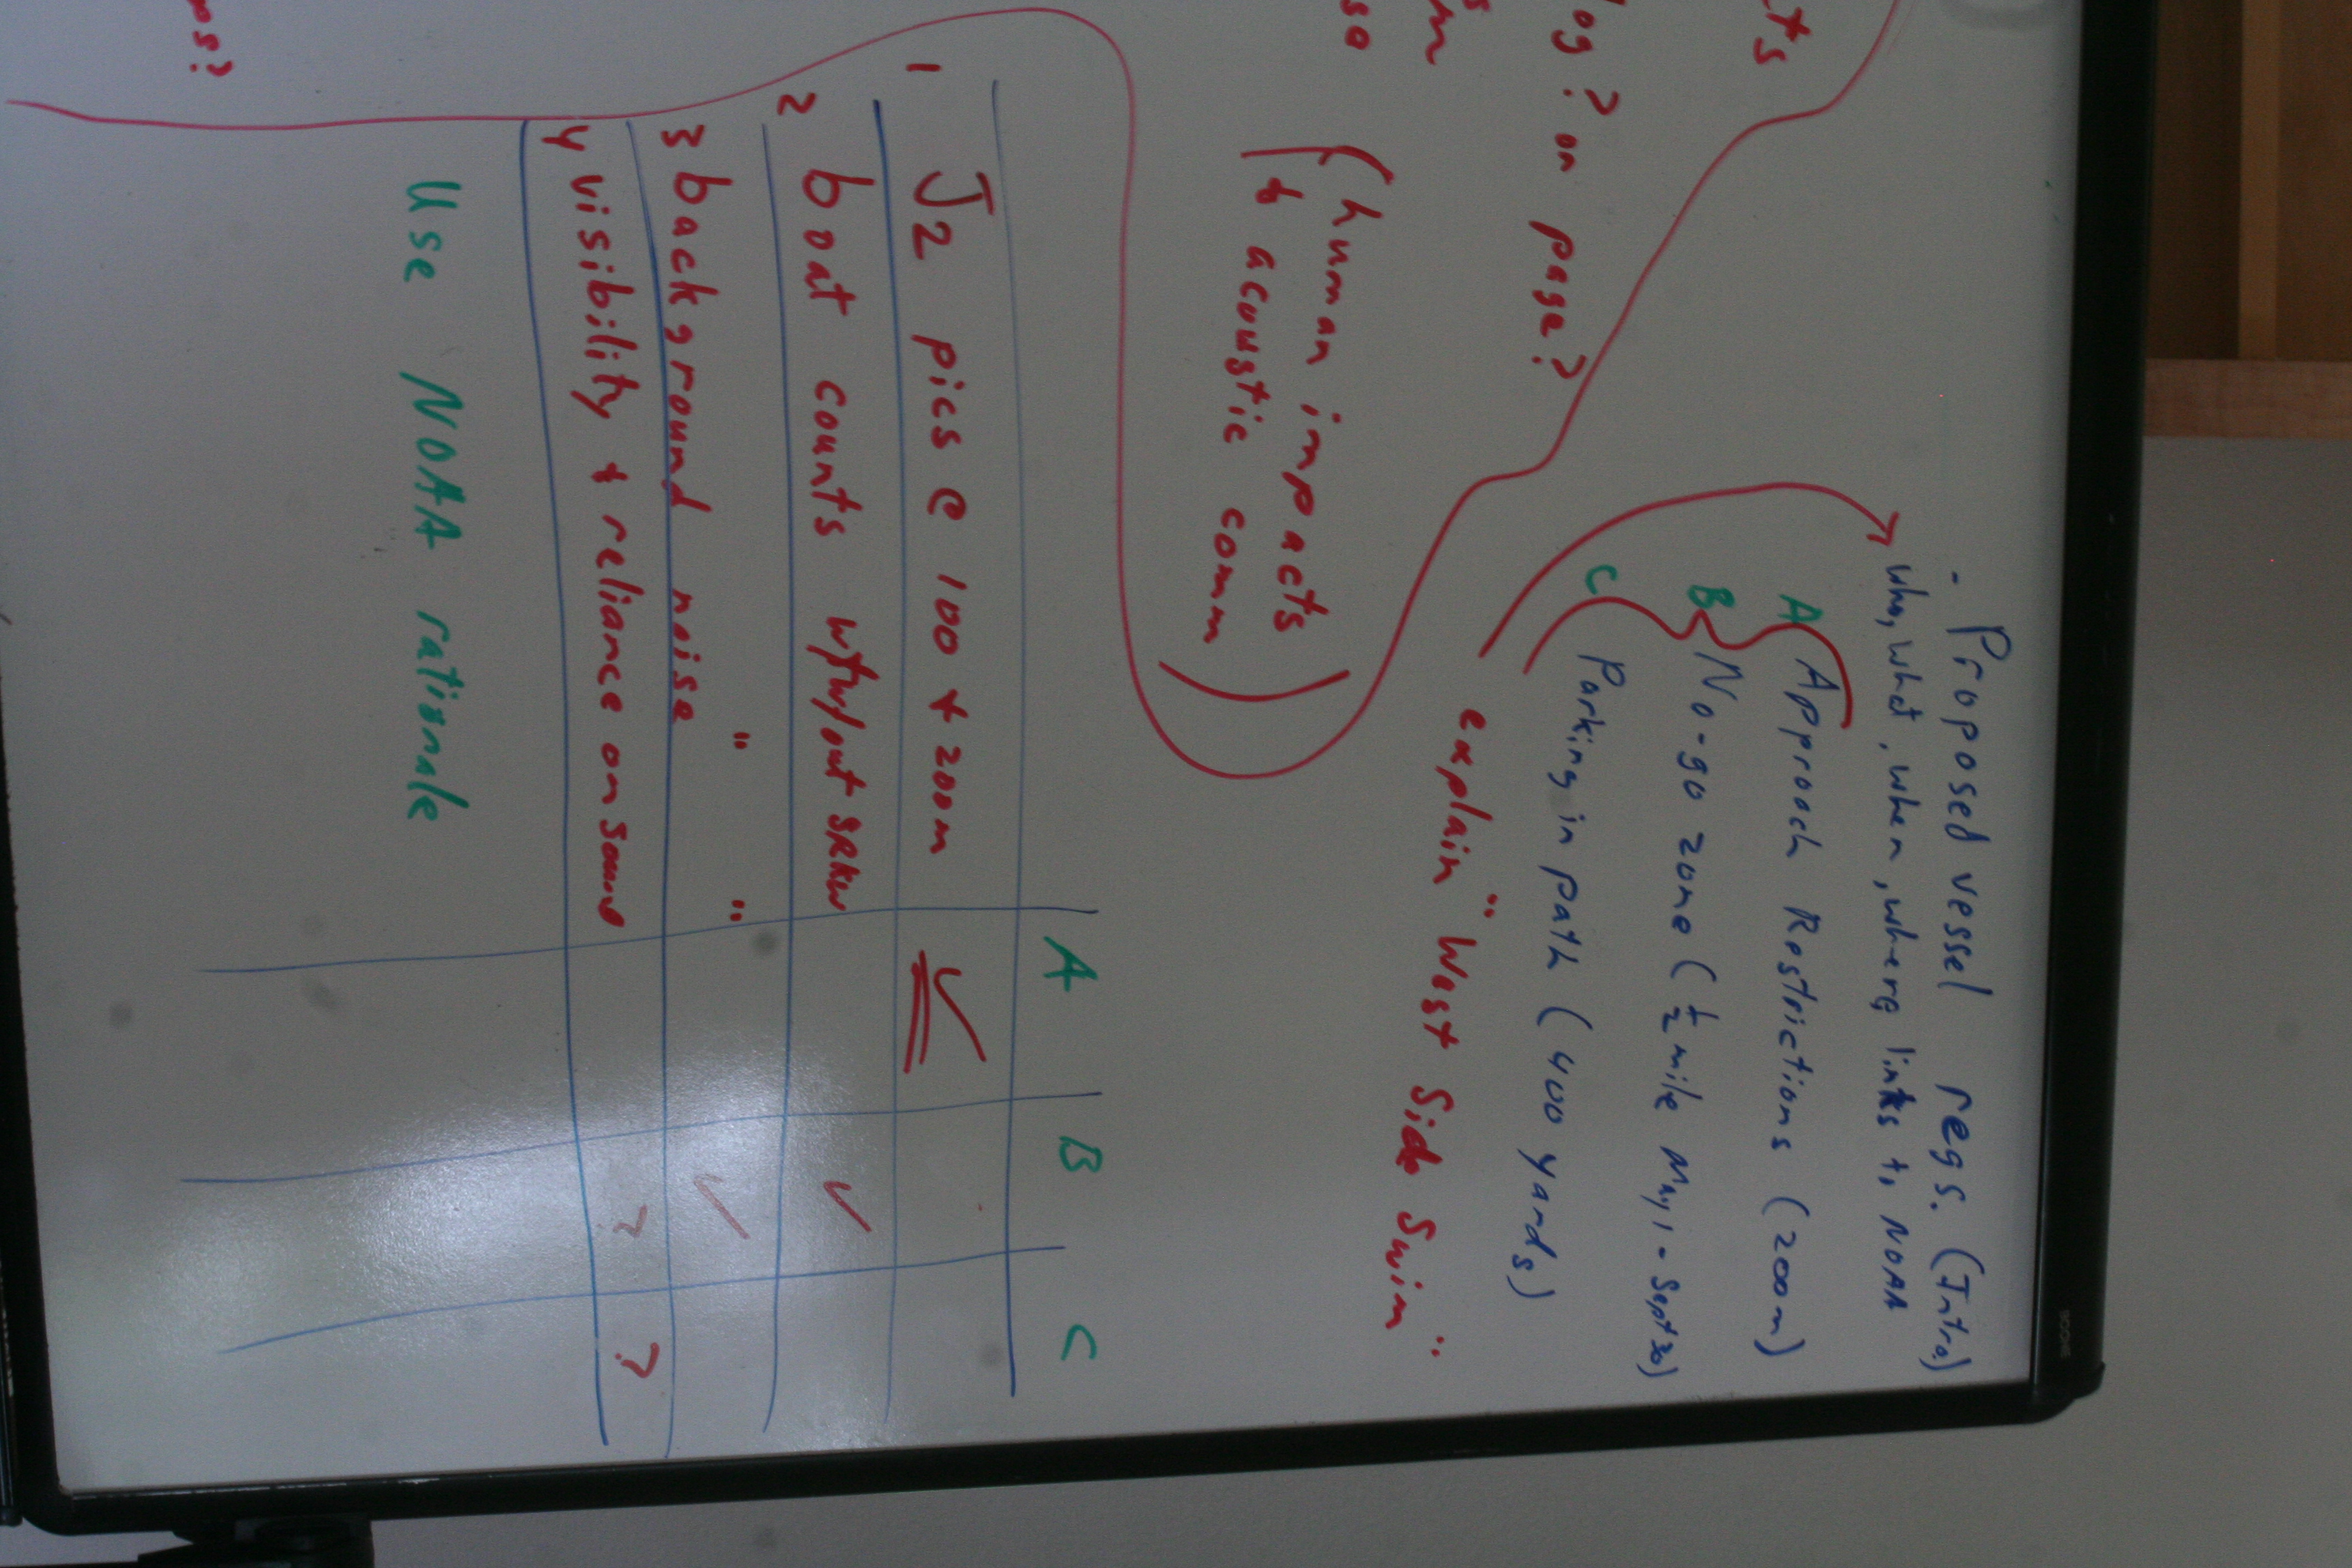 - Proposed vessel regs. (Intro)
who, what, when, where, links to NOAA
A Approach Restrictions (200m)
B No-go zone (1/2 mile May 1 - Sept 30)
C Parking in path (400 yards)
explain "West Side Swim"
ts
og? on page?
(human impacts
to acoustic comm)
so
A B C
1 J2 pics @ 100 & 200m ✓
2 boat counts w/w/out SRKW ✓
3 background noise " " ✓
4 visibility & reliance on sound ? ?
Use NOAA rationale
ns?